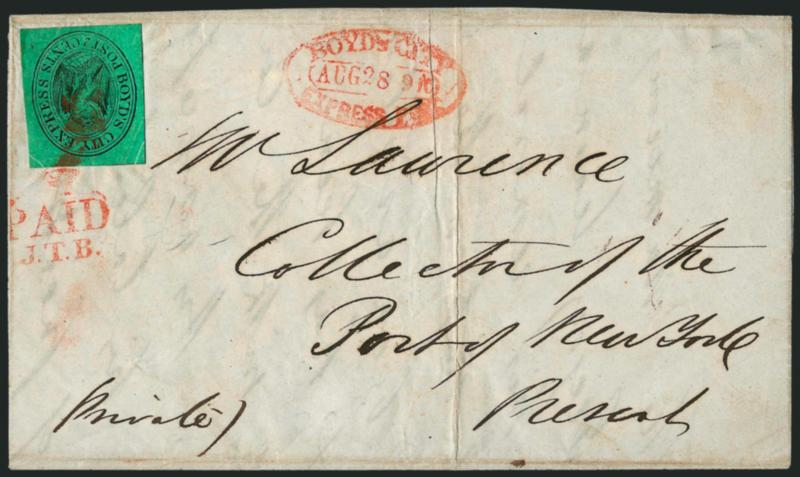 BOYD'S CITY EXPRESS POST 2 CENTS.
BOYD'S CITY
AUG 28 9
EXPRESS
PAID
J.T.B.
Mr Lawrence
Collector of the
Port of New York
Present
(Private)